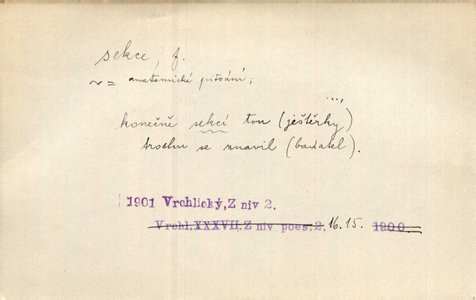 sekce, f.
~ = anatomické pitvání;
konečně sekcí tou (ještěrky, ...)
trochu se znavil (badatel).
1901 Vrchlický,Z niv 2.
Vrchl.XXXVII,Z niv poes.2. 16.15. 1900